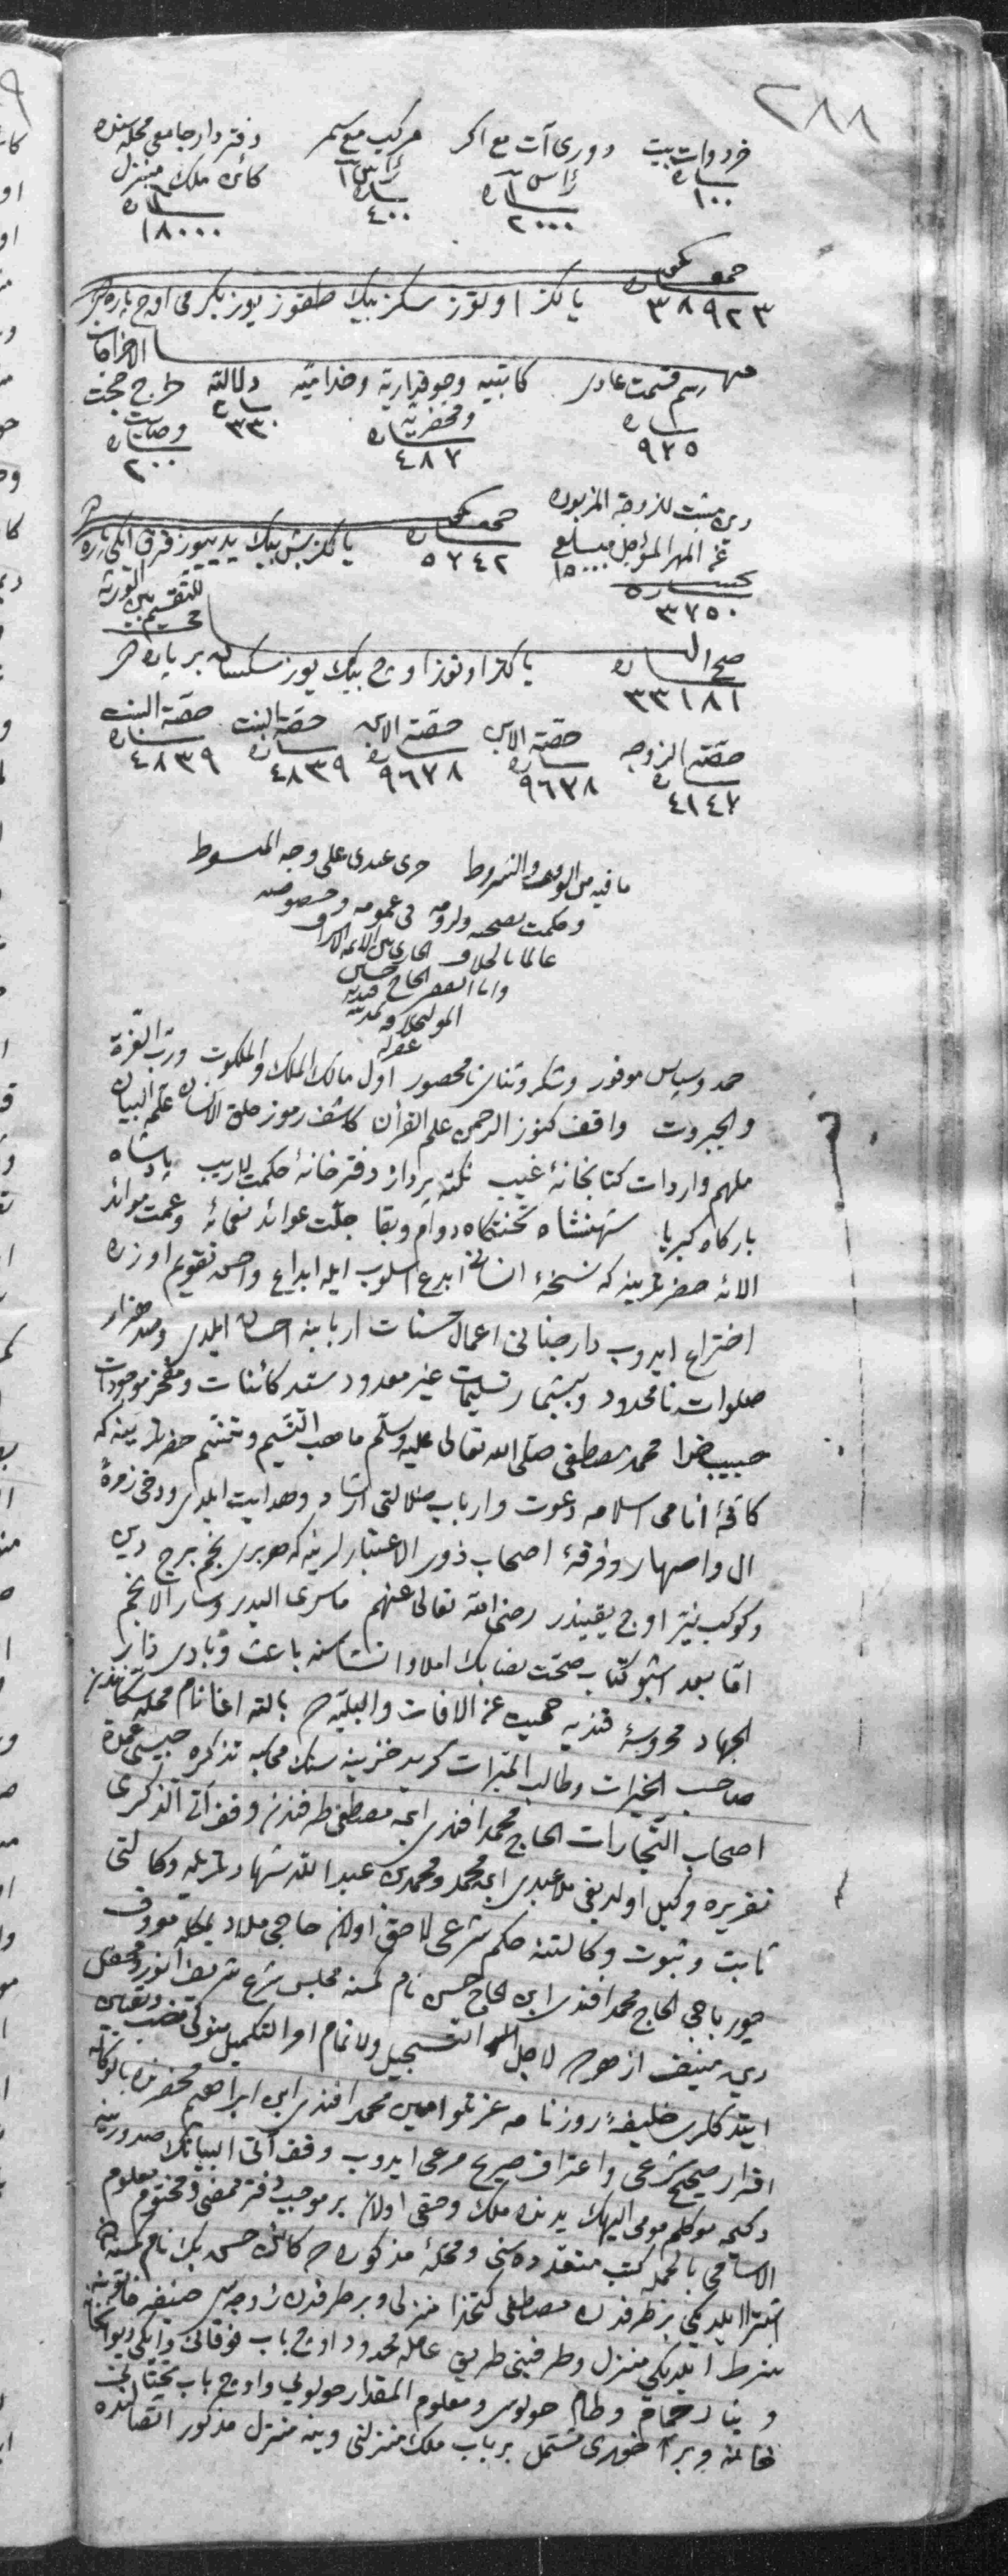 ٢٨٨
خردوات بيت دوری آت مع اكر مركب مع سمر دفتردار جامعی محله‌سنده
پاره رأس پاره رأس ١ پاره كائن ملك منزل
١٠٠ ٢٠٠٠ ٤٠٠ پاره ١٨٠٠٠
جمعا يكون
پاره ٣٨٩٢٣ يالكز اوتوز سكز بيك طقوز يوز يكرمی اوج پاره‌در
الاخراجات
منها رسم قسمت عادی كاتبيه وجوقداريه وخداميه دلاليه خرج حجت
پاره ومحضريه پاره وصايت
٩٧٥ پاره ٤٨٧ ٣٣٠ پاره ٢٠٠
دين مثبت للزوجة المزبوره
عن المهر المؤجل جمعا يكون
پاره ٥٧٤٢ يالكز بش بيك يديیوز قرق ايكی پاره
پاره ٣٧٥٠
للتقسيم بين الورثه
صح الباقی پاره يالكز اوتوز اوج بيك يوز سكسان بر پاره‌در
٣٣١٨١
حصة الزوجه حصة الابن حصة الابن حصة البنت حصة البنت
پاره ٤١٤٧ پاره ٩٦٧٨ پاره ٩٦٧٨ پاره ٤٨٣٩ پاره ٤٨٣٩
ما فيه من الوقف والشروط جری عندی علی وجه المبسوط
وحكمت بصحته ولزومه فی عمومه وخصوصه
عالما بالخلاف الجاری بين الائمة الاشراف
وانا الفقير الحاج
المولی خلافة بمدينة
غفر له
حمد وسپاس موفور وشكر وثنای نامحصور اول مالك الملك والملكوت ورب العزة
والجبروت واقف كنوز الرحمن علم القرأن كاشف رموز خلق الانسان علمه البيان
ملهم واردات كتابخانۀ غيب نكته پرداز دفترخانۀ حكمت لاريب پادشاه
باركاه كبريا شهنشاه تختكاه دوام وبقا جلت عوائد نعمائه وعمت موائد
الائه حضرتلرينه كه نسخۀ انسانی ابدع اسلوب ايله ابداع واحسن تقويم اوزره
اختراع ايدوب دار جنانی اعمال حسنات اربابنه احسان ايلدی وصد هزار
صلوات نامحدود وبيشمار تسليمات غير معدود سيد كائنات ومفخر موجودات
حبيب خدا محمد مصطفی صلی الله تعالی عليه وسلم صاحب التنسيم حضرتلرينه كه
كافۀ انامی اسلامه دعوت وارباب ضلالتی ارشاد وهدايت ايلدی ودخی زمرۀ
ال واصهار وفرقۀ اصحاب ذوی الاعتبارلرينه كه هر بری نجم برج دين
وكوكب نير اوج يقيندر رضی الله تعالی عنهم ما سری البدر وسار الانجم
اما بعد اشبو كتاب صحت نصابك املا وانشاسنه باعث وبادی دار
الجهاد محروسۀ قنديه حميت عن الافات والبليه بالته اغا نام محله سكانندن
صاحب الخيرات وطالب المبرات كريد خزينه‌سنك محاسبه تذكره‌جيسی عمدة
اصحاب التجارات الحاج محمد افندی ابن مصطفی طرفندن وقف آتی الذكری
تقريره وكيل اولديغی ملا عبدی ابن محمد ومحمد بن عبدالله شهادتلريله وكالتی
ثابت وثبوت وكالتنه حكم شرعی لاحق اولان حاجی ملاد ديمكله معروف
جورباجی الحاج محمد افندی ابن الحاج حسن نام كمسنه مجلس شرع شريف انور ومحفل
دين منيف ازهرده لاجل التسجيل ولاتمام امر التكميل متولی نصب وتعيين
ايتدكلری خليفۀ روزنامه عزتلو امين محمد افندی ابن ابراهيم محضرنده بالوكاله
اقرار صحيح شرعی واعتراف صريح مرعی ايدوب وقف آتی البيانك صدورينه
دكين موكلم مومی اليهك يدنده ملك وحقی اولان بر موجب دفتر ممضی ومختوم معلوم
الاسامی بالجمله كتب متعدده‌سنی ومحلۀ مذكوره‌ده كائن حسن بك نام كمسنه‌دن
اشترا ايلديكی بر طرفدن مصطفی كتخدا منزلی وبر طرفدن زوجه‌سی
بشرط ايلديكی منزل وطرفينی طريق عامله محدود اوج باب فوقانی وايكی ديوانخانه
وبنا حمام وطام حولوسی ومعلوم المقدار حولولی واوج باب تحتانی
خانه وبر آخوری مشتمل بر باب ملك منزلنی وينه منزل مذكور اتصالنده